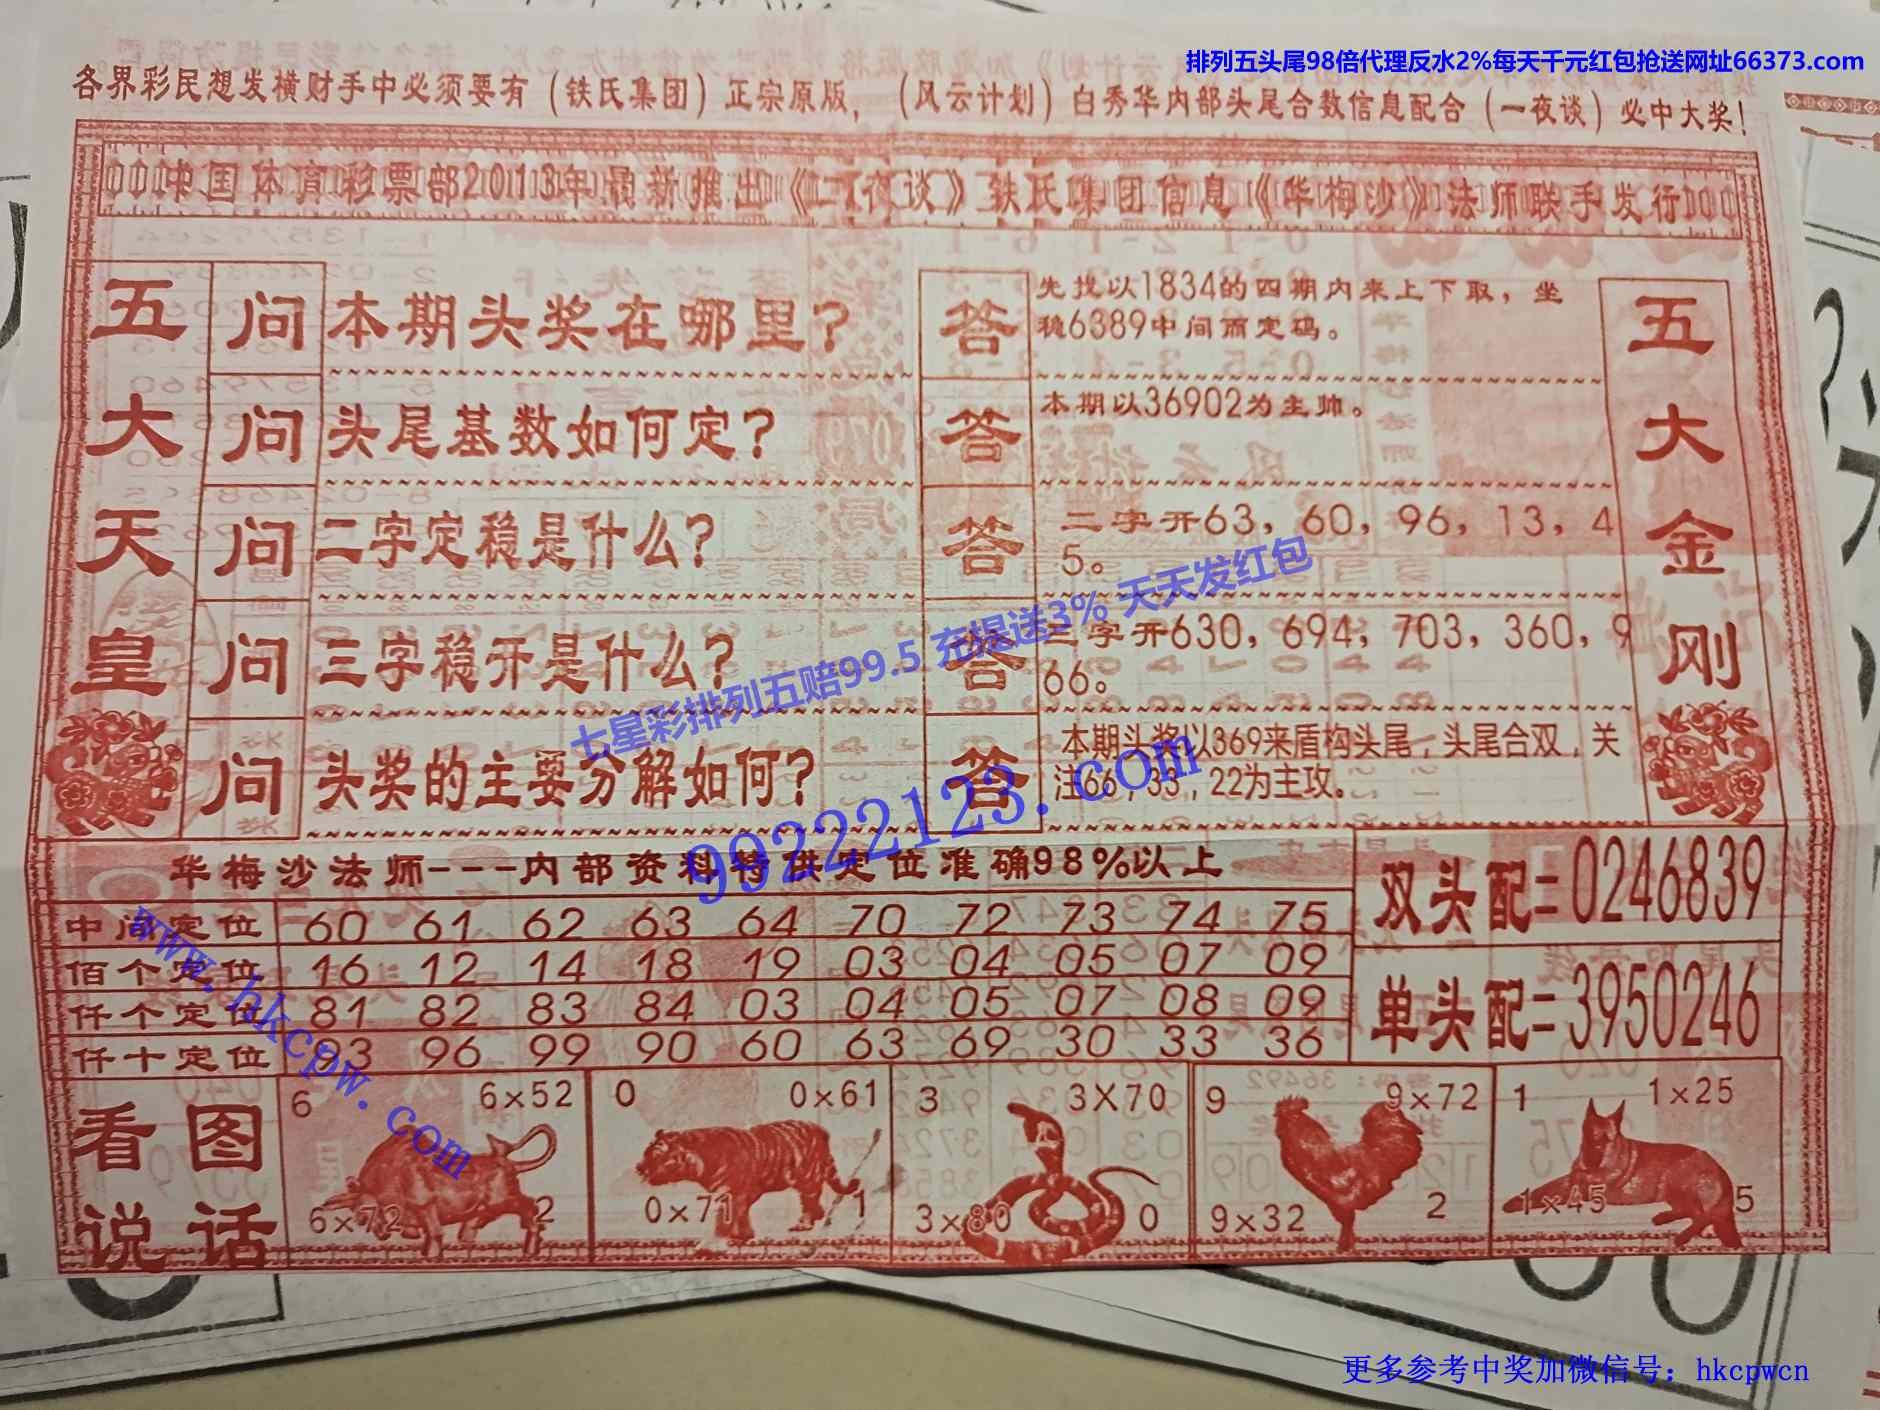 排列五头尾98倍代理反水2%每天千元红包抢送网址66373.com
各界彩民想发横财手中必须要有（铁氏集团）正宗原版，（风云计划）白秀华内部头尾合数信息配合（一夜谈）必中大奖！
中国体育彩票部2013年最新推出《一夜谈》铁氏集团信息《华梅沙》法师联手发行
五大天皇
问 本期头奖在哪里？
答 先找以1834的四期内来上下取，坐
稳6389中间而定码。
问 头尾基数如何定？
答 本期以36902为主帅。
问 二字定稳是什么？
答 二字开63，60，96，13，4
5。
问 三字稳开是什么？
答 三字开630，694，703，360，9
66。
问 头奖的主要分解如何？
答 本期头奖以369来盾构头尾，头尾合双，关
注66，33，22为主攻。
五大金刚
七星彩排列五赔99.5 充提送3% 天天发红包
99222123.com
华梅沙法师---内部资料特供定位准确98%以上
中间定位 60 61 62 63 64 70 72 73 74 75
佰个定位 16 12 14 18 19 03 04 05 07 09
仟个定位 81 82 83 84 03 04 05 07 08 09
仟十定位 93 96 99 90 60 63 69 30 33 36
双头配=0246839
单头配=3950246
www.hkcpw.com
看图
说话
6 6×52
6×72 2
0 0×61
0×71 1
3 3X70
3×80 0
9 9×72
9×32 2
1 1×25
1×45 5
更多参考中奖加微信号：hkcpwcn